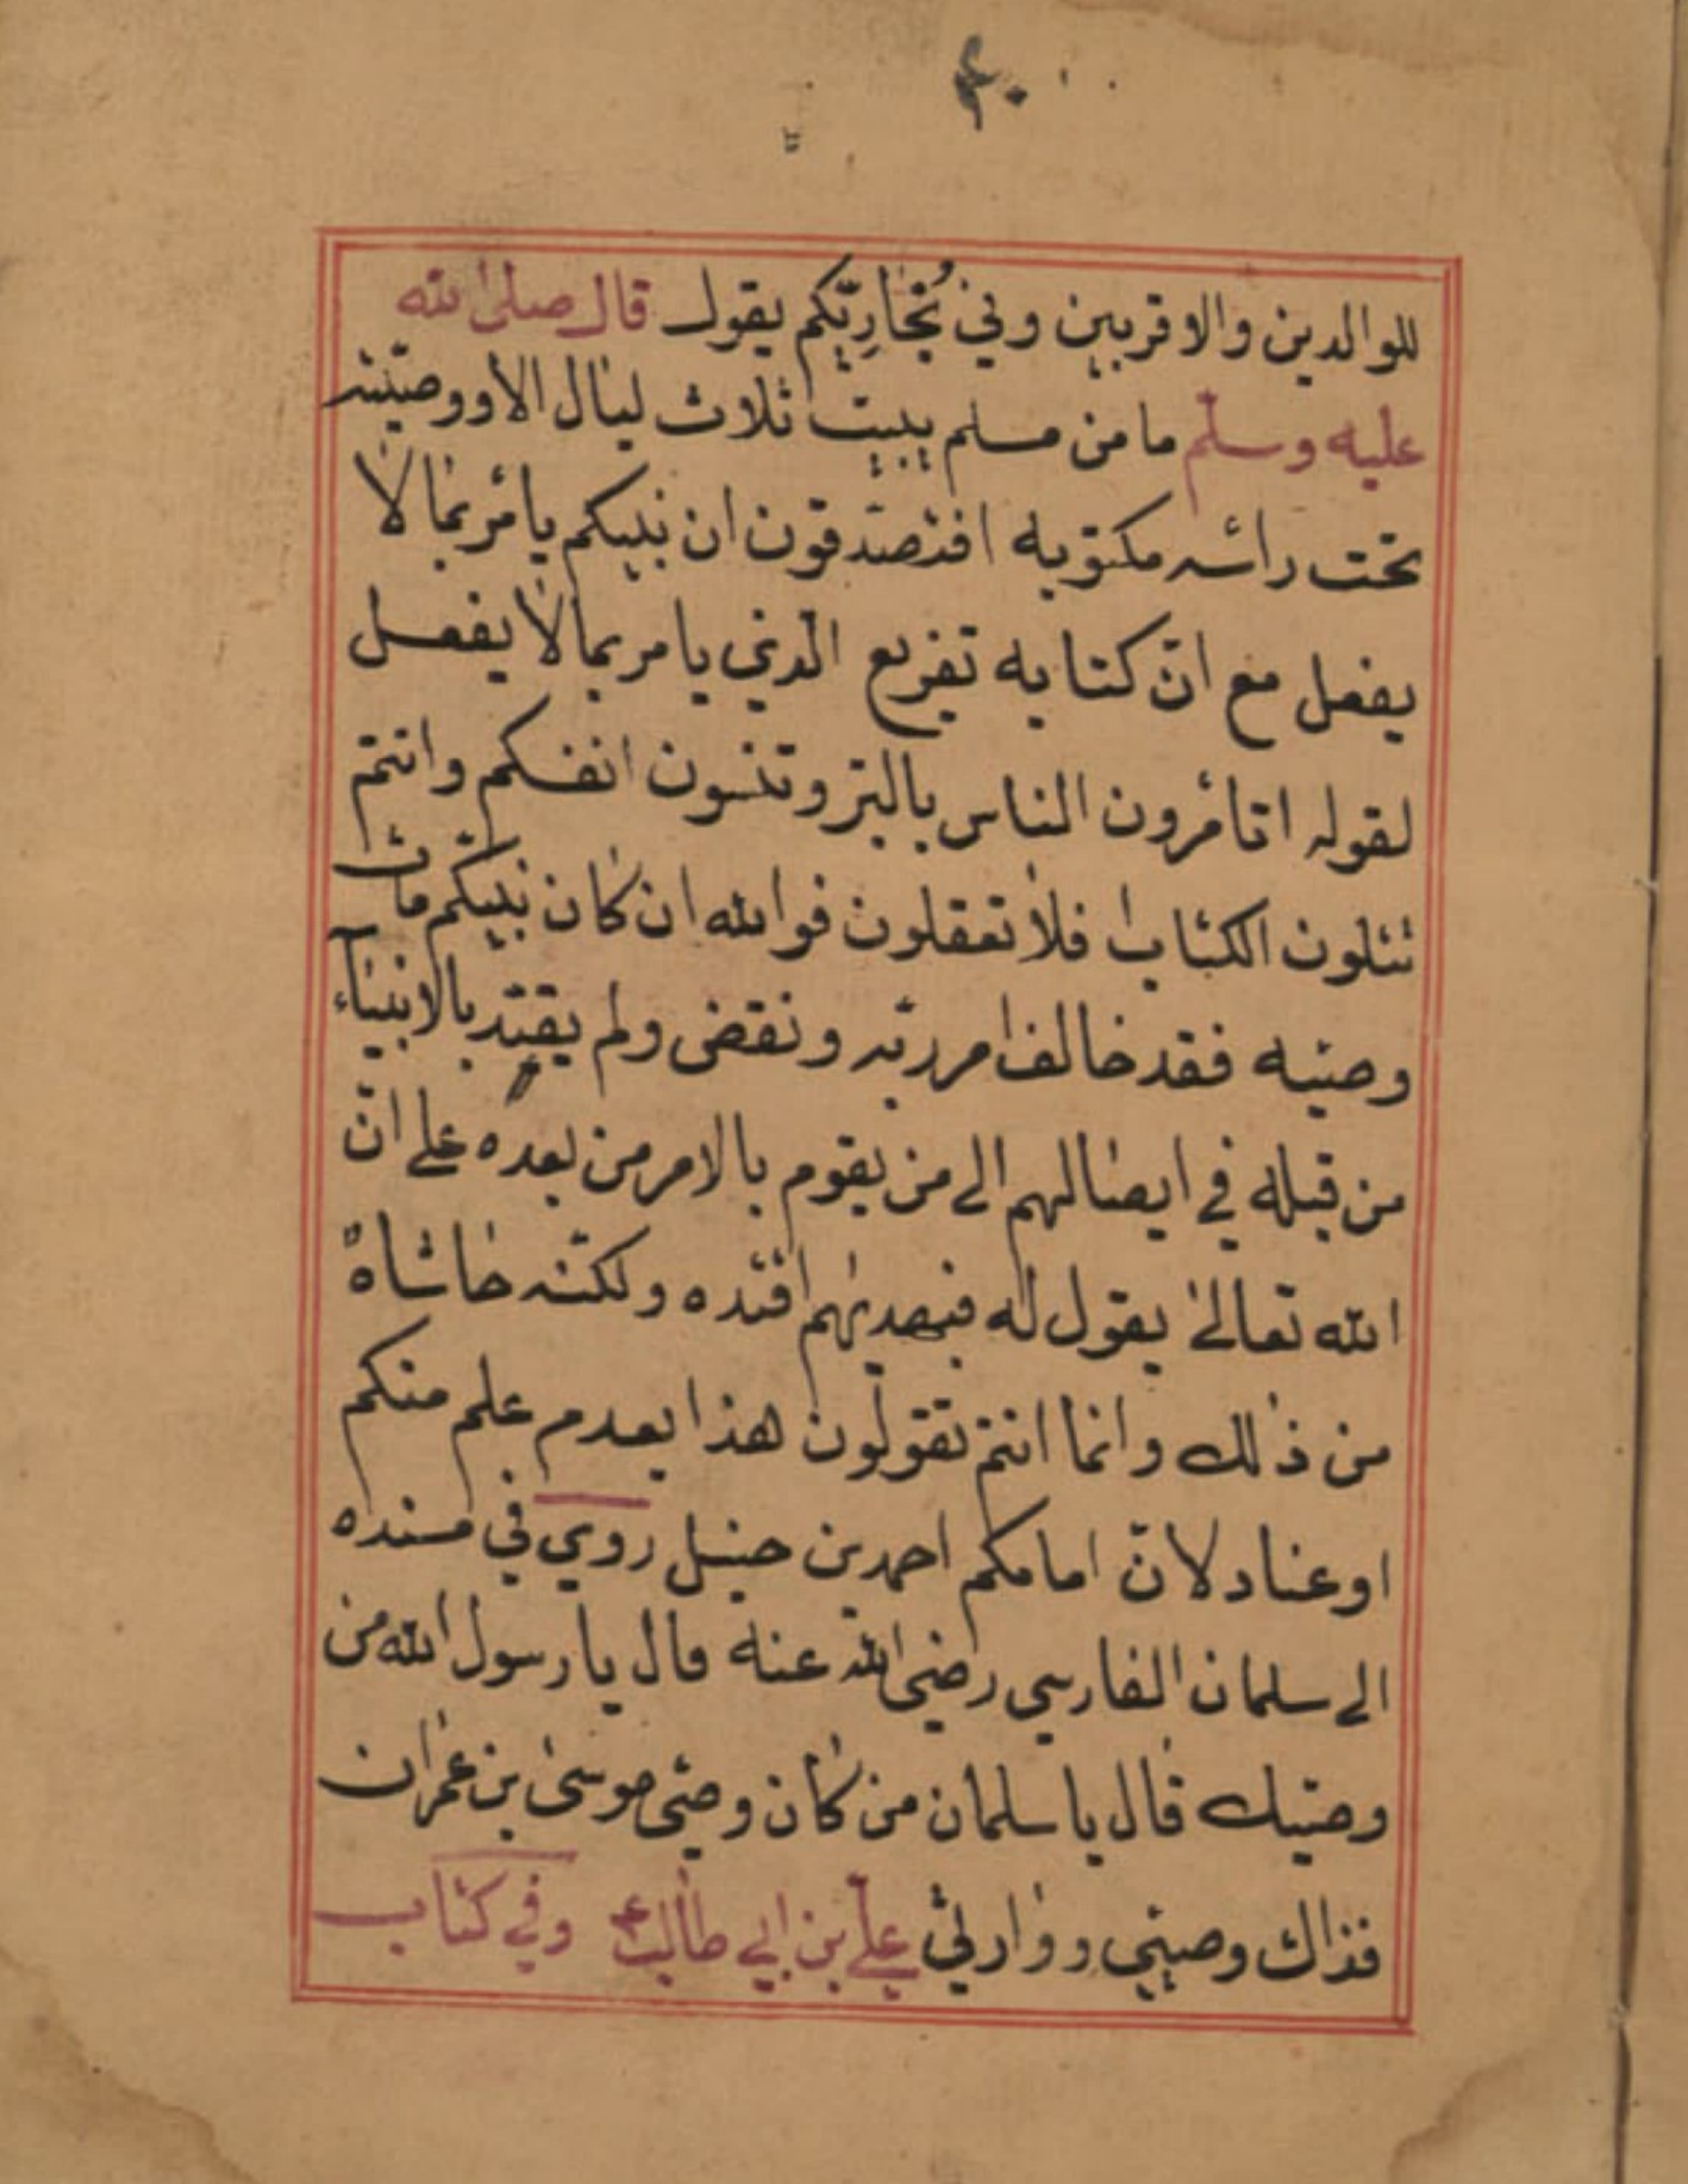 ٤٠
للوالدين والاقربين وفي بُخاريّكم يقول قال صلى الله
عليه وسلّم ما من مسلم يبيت ثلاث ليال الا ووصيّته
تحت رأسه مكتوبه افتصدقون ان نبيكم يأمر بما لا
يفعل مع انّ كتابه تقريع الّذي يامر بما لا يفعل
لقوله اتأمرون الناس بالبرّ وتنسون انفسكم وانتم
تتلون الكتاب افلا تعقلون فوالله ان كان نبيكم مات بلا
وصيّه فقد خالف امر ربّه ونقض ولم يقتد بالانبيآء
من قبله في ايصالهم الى من يقوم بالامر من بعده على انّ
الله تعالى يقول له فبهديهم اقتده ولكنّه حاشاه
من ذلك وانما انتم تقولون هذا بعدم علم منكم
او عناد لانّ امامكم احمد بن حنبل روي في مسنده
الى سلمان الفارسي رضي الله عنه قال يا رسول الله من
وصيّك قال يا سلمان من كان وصيّ موسى بن عمران
فذاك وصيّي ووارثي عليّ بن ابي طالب ع وفي كتاب